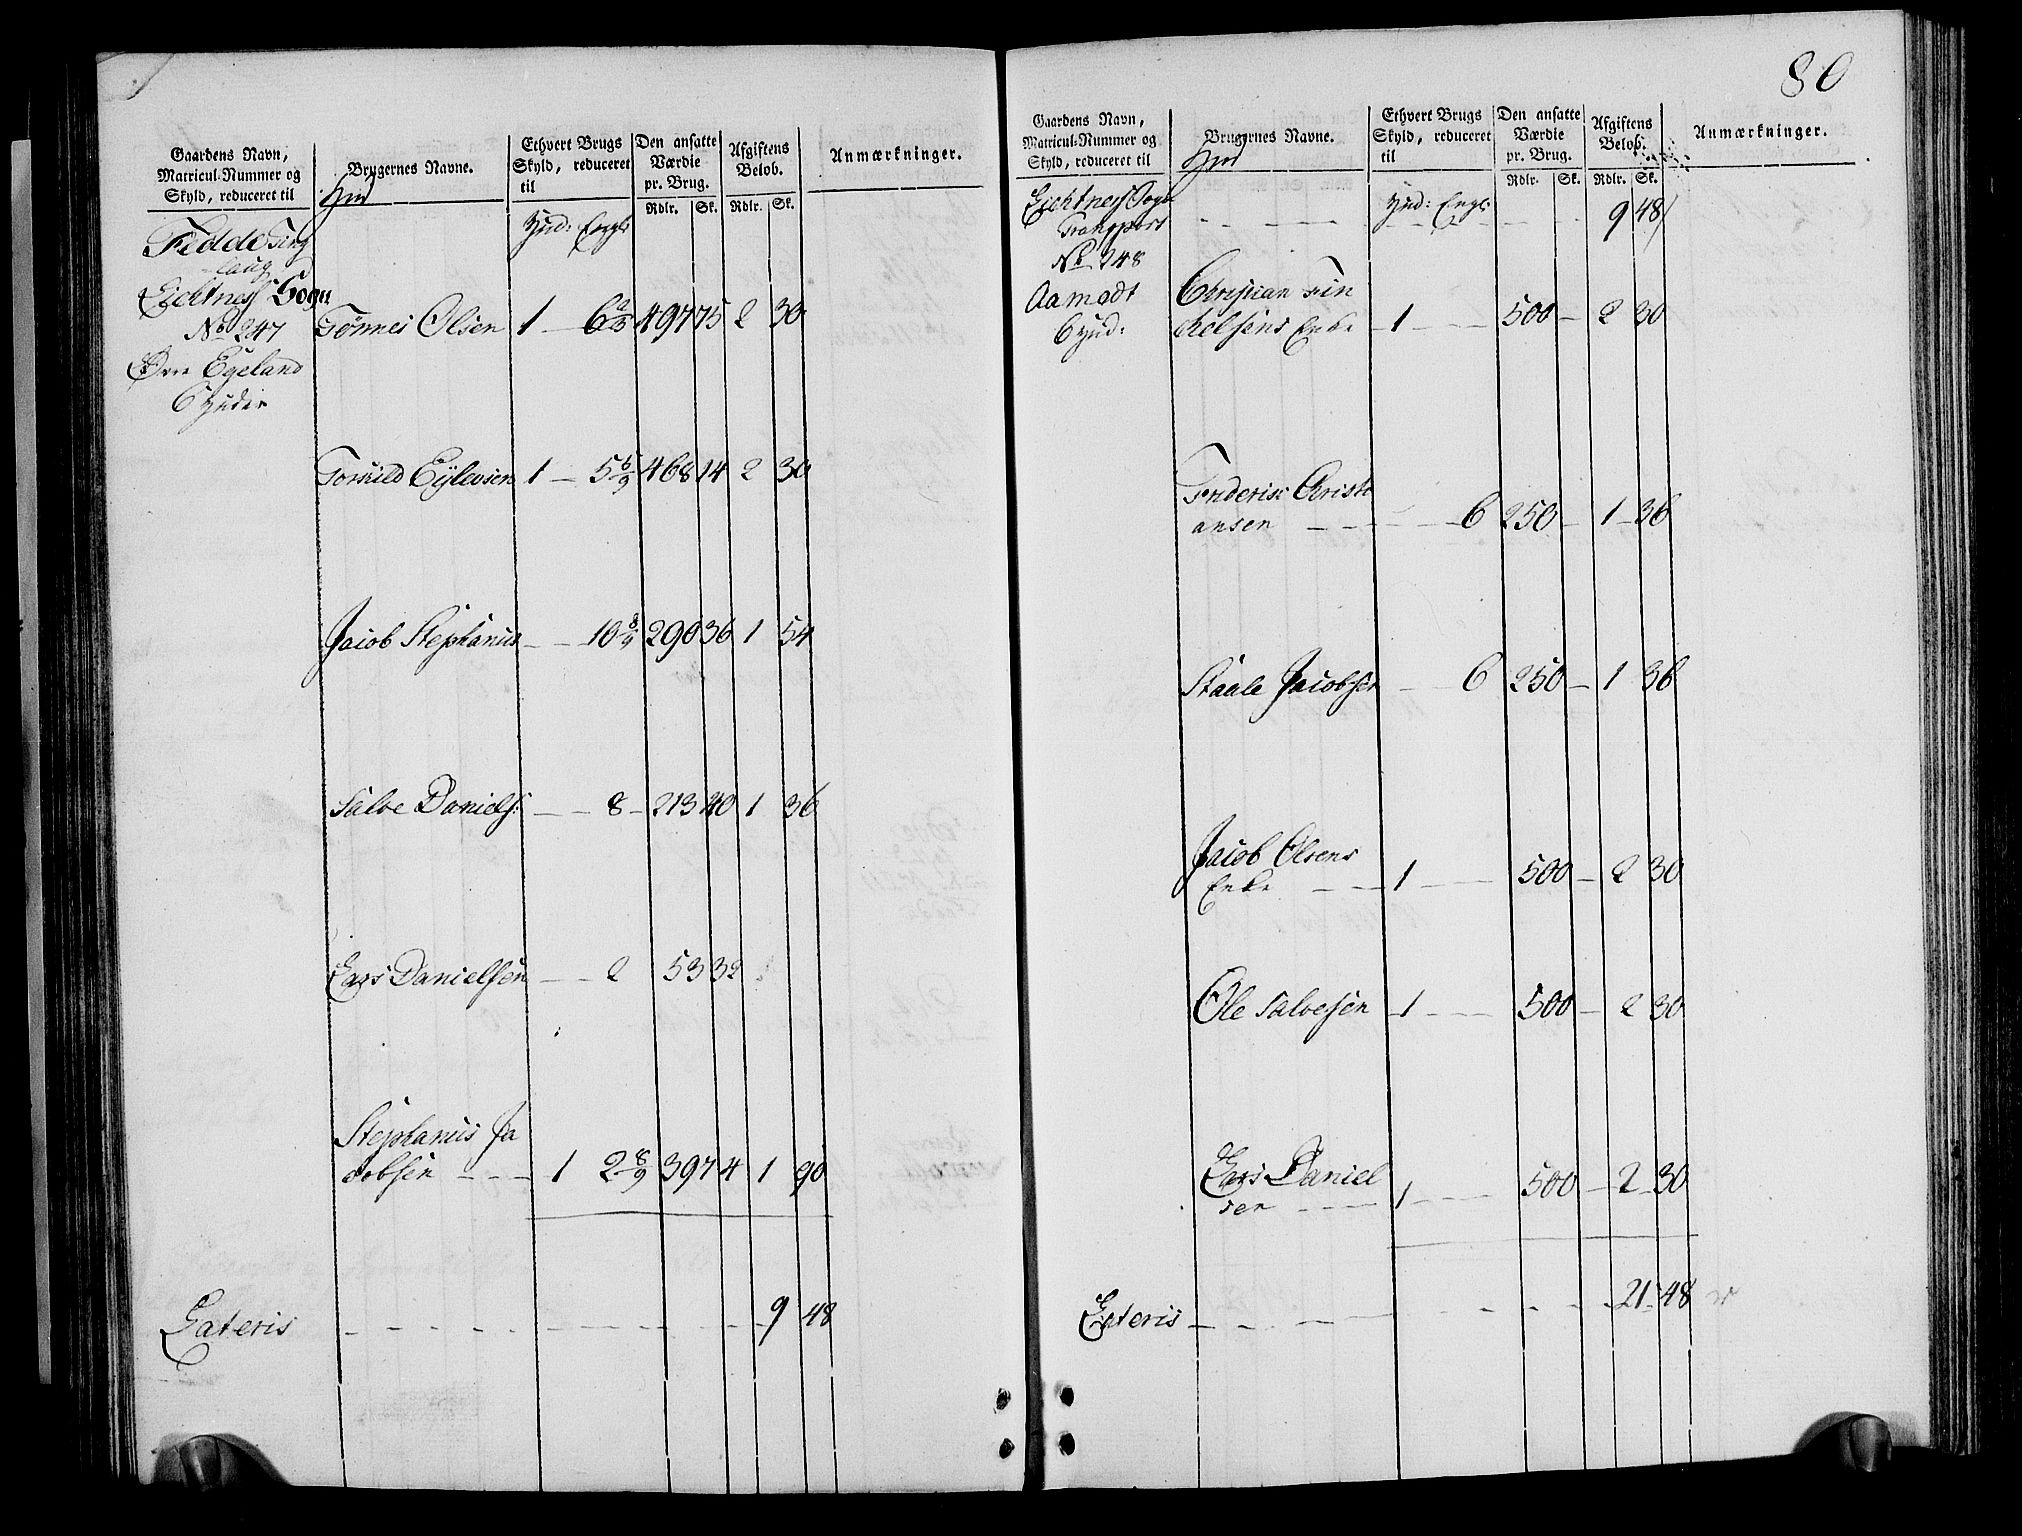 Gaardens Navn,
Matricul-Nummer og
Skyld, reduceret til
Brugernes Navne.
Ethvert Brugs
Skyld, reduceret
til
Den ansatte
Værdie
pr. Brug.
Rdlr. Sk.
Afgiftens
Belob.
Rdlr. Sk.
Anmærkninger.
Hud
Hud: Engl:
Fedde Ting
laug
Lichtness Sogn
No 247
Øvre Egeland
6 Huder
Tønnes Olsen 1 — 6 2/3 497 75 2 30
Torkild Eylevsen 1 — 5 6/9 468 14 2 30
Jacob Stephanus — — 10 8/9 290 36 1 54
Salve Daniels: — — 8 — 213 40 1 36
Lars Danielsen — — 2 53 32
Stephanus Ja
cobsen — — — 1 2 8/9 397 4 1 90
Lateris — — — — — — 9 48
80
Gaardens Navn,
Matricul-Nummer og
Skyld, reduceret til
Brugernes Navne.
Ethvert Brugs
Skyld, reduceret
til
Den ansatte
Værdie
pr. Brug.
Rdlr. Sk.
Afgiftens
Belob.
Rdlr. Sk.
Anmærkninger.
Hud
Hud: Engl:
Lichtness Sogn
Transport — — — — 9 48
No 248
Aamodt
6 Hud:
Christian Tin
kelsens Enke — 1 — — 500 — 2 30
Frederik Christi
ansen — — — — 6 250 — 1 — 36
Staale Jacobsen — — 6 250 — 1 36
Jacob Olsens
Enke — — 1 — — 500 — 2 30
Ole Salvesen — 1 — — 500 — 2 30
Lars Daniel
sen — — — 1 — — 500 — 2 30
Lateris — — — — — — 21 48